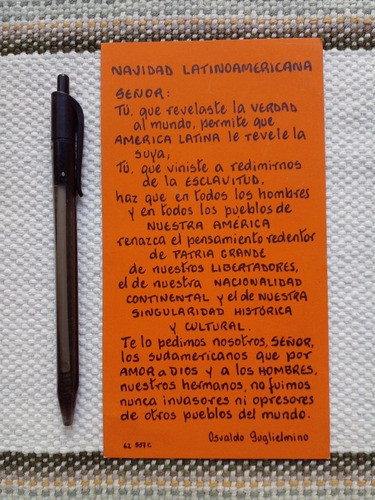 NAVIDAD LATINOAMERICANA
SEÑOR:
Tú, que revelaste la VERDAD
al mundo, permite que
AMERICA LATINA le revele la
suya;
Tú, que viniste a redimirnos
de la ESCLAVITUD,
haz que en todos los hombres
y en todos los pueblos de
NUESTRA AMÉRICA
renazca el pensamiento redentor
de PATRIA GRANDE
de nuestros LIBERTADORES,
el de nuestra NACIONALIDAD
CONTINENTAL y el de NUESTRA
SINGULARIDAD HISTÓRICA
y CULTURAL.
Te lo pedimos nosotros, SEÑOR,
los sudamericanos que por
AMOR a DIOS y a los HOMBRES,
nuestros hermanos, no fuimos
nunca invasores ni opresores
de otros pueblos del mundo.
Osvaldo Guglielmino